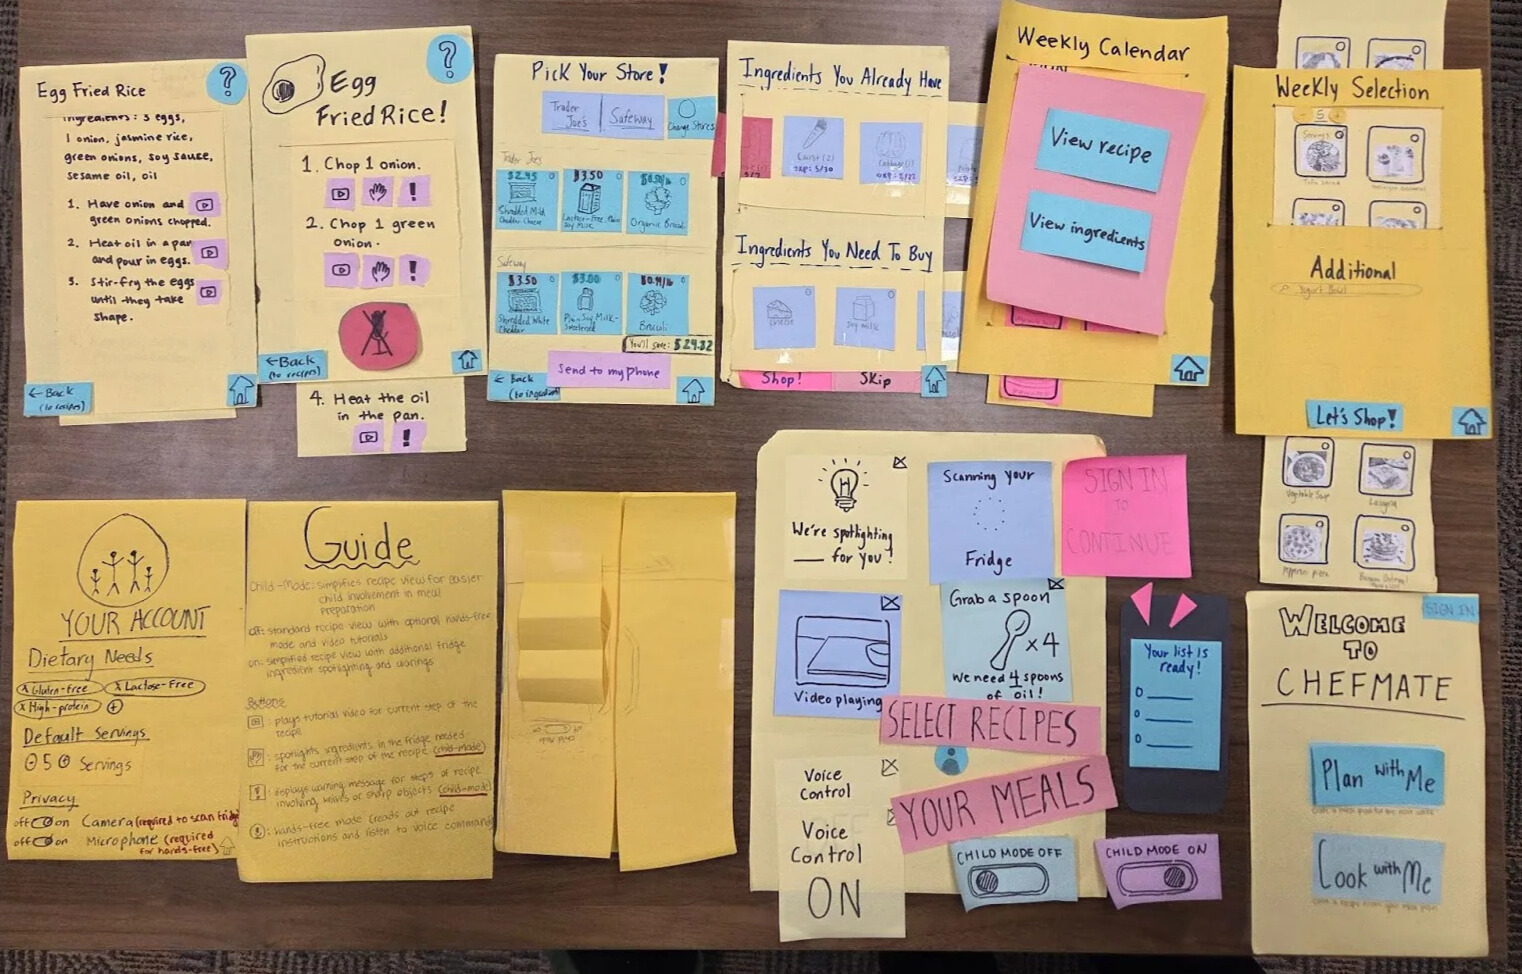 Egg Fried Rice
?
Ingredients: 3 eggs,
1 onion, jasmine rice,
green onions, soy sauce,
sesame oil, oil
1. Have onion and
green onions chopped.
2. Heat oil in a pan
and pour in eggs.
3. Stir-fry the eggs
until they take
shape.
← Back
(to recipes)
?
Egg
Fried Rice!
1. Chop 1 onion.
!
2. Chop 1 green
onion.
!
← Back
(to recipes)
4. Heat the oil
in the pan.
!
Pick Your Store!
Trader
Joe's
Safeway
Change Stores
Trader Joes
$2.45
$3.50
Shredded Mild
Cheddar Cheese
Lactose-Free Plain
Soy Milk
Organic Broccoli
Safeway
$3.50
$3.00
Shredded White
Cheddar
Plain Soy Milk-
Sweetened
Broccoli
You'll save: $24.82
Send to my phone
← Back
Ingredients You Already Have
Carrot (2)
exp: 5/30
Cabbage (1)
Ingredients You Need To Buy
Cheese
Soy milk
Shop!
Skip
Weekly Calendar
View recipe
View ingredients
Weekly Selection
- 5 +
Servings
Additional
Yogurt Bowl
Let's Shop!
Vegetable Soup
Lasagna
Pepperoni Pizza
YOUR ACCOUNT
Dietary Needs
x Gluten-free
x Lactose-free
x High-protein
+
Default Servings
- 5 + Servings
Privacy
off on Camera (required to scan fridge)
off on Microphone (required
for hands-free)
Guide
Child-Mode: simplifies recipe view for easier
child involvement in meal
preparation
off: standard recipe view with optional hands-free
mode and video tutorials
on: simplified recipe view with additional fridge
ingredient spotlighting and warnings
Buttons
: plays tutorial video for current step of the
recipe
: spotlights ingredients in the fridge needed
for the current step of the recipe (child-mode)
: displays warning message for steps of recipe
involving knives or sharp objects (child-mode)
: hands-free mode (reads out recipe
instructions and listen to voice commands)
We're spotlighting
___ for you!
Scanning your
Fridge
SIGN IN
TO
CONTINUE
Video playing
Grab a spoon
x4
We need 4 spoons
of oil!
SELECT RECIPES
YOUR MEALS
Voice
Control
Voice
Control
ON
CHILD MODE OFF
CHILD MODE ON
Your list is
ready!
SIGN IN
WELCOME
TO
CHEFMATE
Plan with Me
Cook with Me